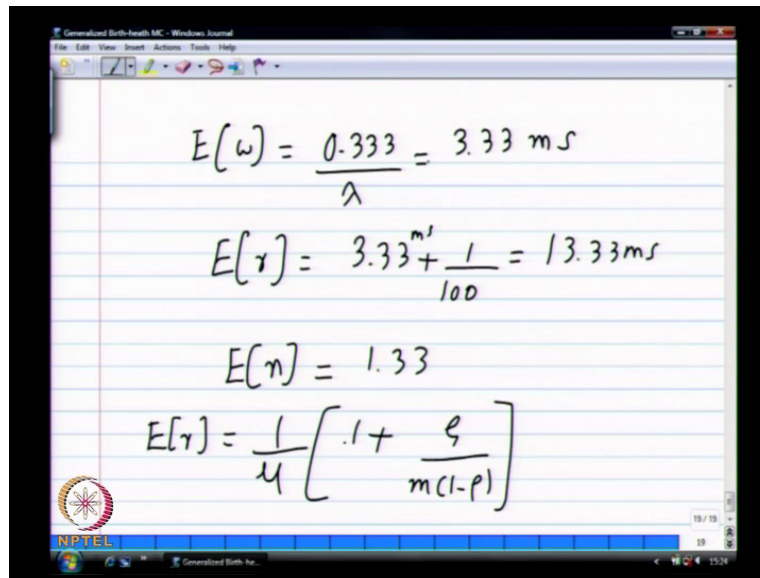 Generalized Birth-heath MC - Windows Journal
File Edit View Insert Actions Tools Help
E(w) = 0.333 / λ = 3.33 ms
E[r] = 3.33 ms + 1 / 100 = 13.33 ms
E[n] = 1.33
E[r] = 1 / μ [ .1 + ρ / m(1-ρ) ]
19 / 19
19
NPTEL
Generalized Birth-he...
15:24